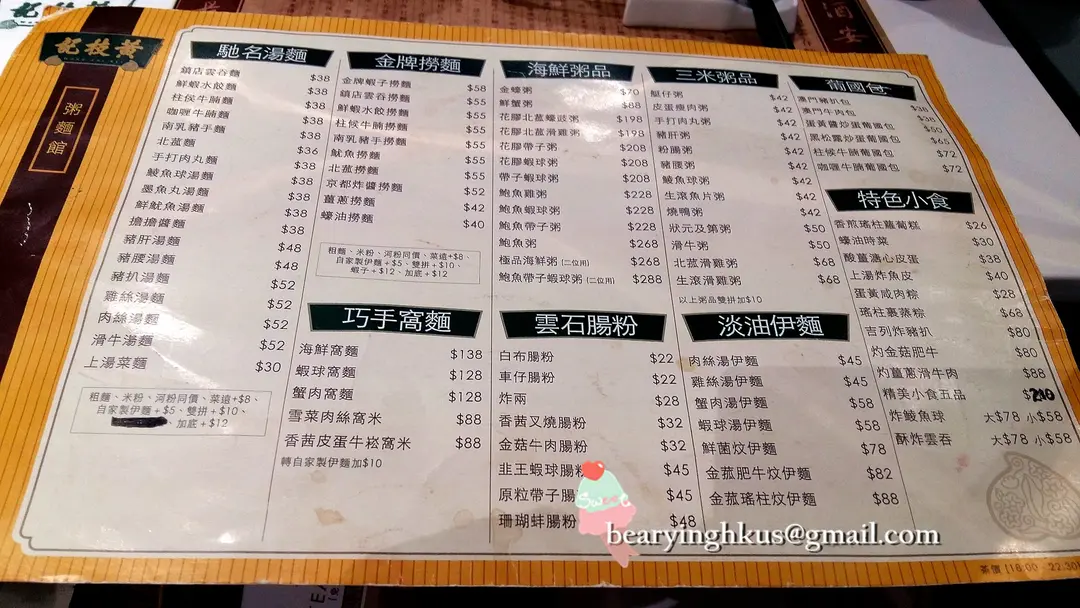 黃枝記
粥麵館
馳名湯麵
鎮店雲吞麵 $38
鮮蝦水餃麵 $38
柱侯牛腩麵 $38
咖喱牛腩麵 $38
南乳豬手麵 $38
北菰麵 $36
手打肉丸麵 $38
鯪魚球湯麵 $38
墨魚丸湯麵 $38
鮮魷魚湯麵 $38
擔擔醬麵 $38
豬肝湯麵 $48
豬腰湯麵 $48
豬扒湯麵 $52
雞絲湯麵 $52
肉絲湯麵 $52
滑牛湯麵 $52
上湯菜麵 $30
粗麵、米粉、河粉同價、菜遠+$8、
自家製伊麵+$5、雙拼+$10、
、加底+$12
金牌撈麵
金牌蝦子撈麵 $58
鎮店雲吞撈麵 $55
鮮蝦水餃撈麵 $55
柱侯牛腩撈麵 $55
南乳豬手撈麵 $55
魷魚撈麵 $55
北菰撈麵 $55
京都炸醬撈麵 $52
薑蔥撈麵 $42
蠔油撈麵 $40
粗麵、米粉、河粉同價、菜遠+$8、
自家製伊麵+$5、雙拼+$10、
蝦子+$12、加底+$12
海鮮粥品
金蠔粥 $70
鮮蟹粥 $88
花膠北菰蠔豉粥 $198
花膠北菰滑雞粥 $198
花膠帶子粥 $208
花膠蝦球粥 $208
帶子蝦球粥 $208
鮑魚雞粥 $228
鮑魚蝦球粥 $228
鮑魚帶子粥 $228
鮑魚粥 $268
極品海鮮粥(二位用) $268
鮑魚帶子蝦球粥(二位用) $288
三米粥品
艇仔粥 $42
皮蛋瘦肉粥 $42
手打肉丸粥 $42
豬肝粥 $42
粉腸粥 $42
豬腰粥 $42
鯪魚球粥 $42
生滾魚片粥 $42
燒鴨粥 $42
狀元及第粥 $50
滑牛粥 $50
北菰滑雞粥 $68
生滾滑雞粥 $68
以上粥品雙拼加$10
葡國包
澳門豬扒包 $38
澳門牛肉包 $38
蛋黃醬炒蛋葡國包 $50
黑松露炒蛋葡國包 $65
柱侯牛腩葡國包 $72
咖喱牛腩葡國包 $72
特色小食
香煎瑤柱蘿蔔糕 $26
蠔油時菜 $30
酸薑溏心皮蛋 $38
上湯炸魚皮 $40
蛋黃咸肉粽 $28
瑤柱裹蒸粽 $68
吉列炸豬扒 $80
灼金菇肥牛 $80
灼薑蔥滑牛肉 $88
精美小食五品
炸鯪魚球 大$78 小$58
酥炸雲吞 大$78 小$58
巧手窩麵
海鮮窩麵 $138
蝦球窩麵 $128
蟹肉窩麵 $128
雪菜肉絲窩米 $88
香茜皮蛋牛崧窩米 $88
轉自家製伊麵加$10
雲石腸粉
白布腸粉 $22
車仔腸粉 $22
炸兩 $28
香茜叉燒腸粉 $32
金菇牛肉腸粉 $32
韭王蝦球腸粉 $45
原粒帶子腸 $45
珊瑚蚌腸粉 $48
淡油伊麵
肉絲湯伊麵 $45
雞絲湯伊麵 $45
蟹肉湯伊麵 $58
蝦球湯伊麵 $58
鮮菌炆伊麵 $78
金菰肥牛炆伊麵 $82
金菰瑤柱炆伊麵 $88
Sweet
bearyinghkus@gmail.com
茶價 [18:00 - 22:30]